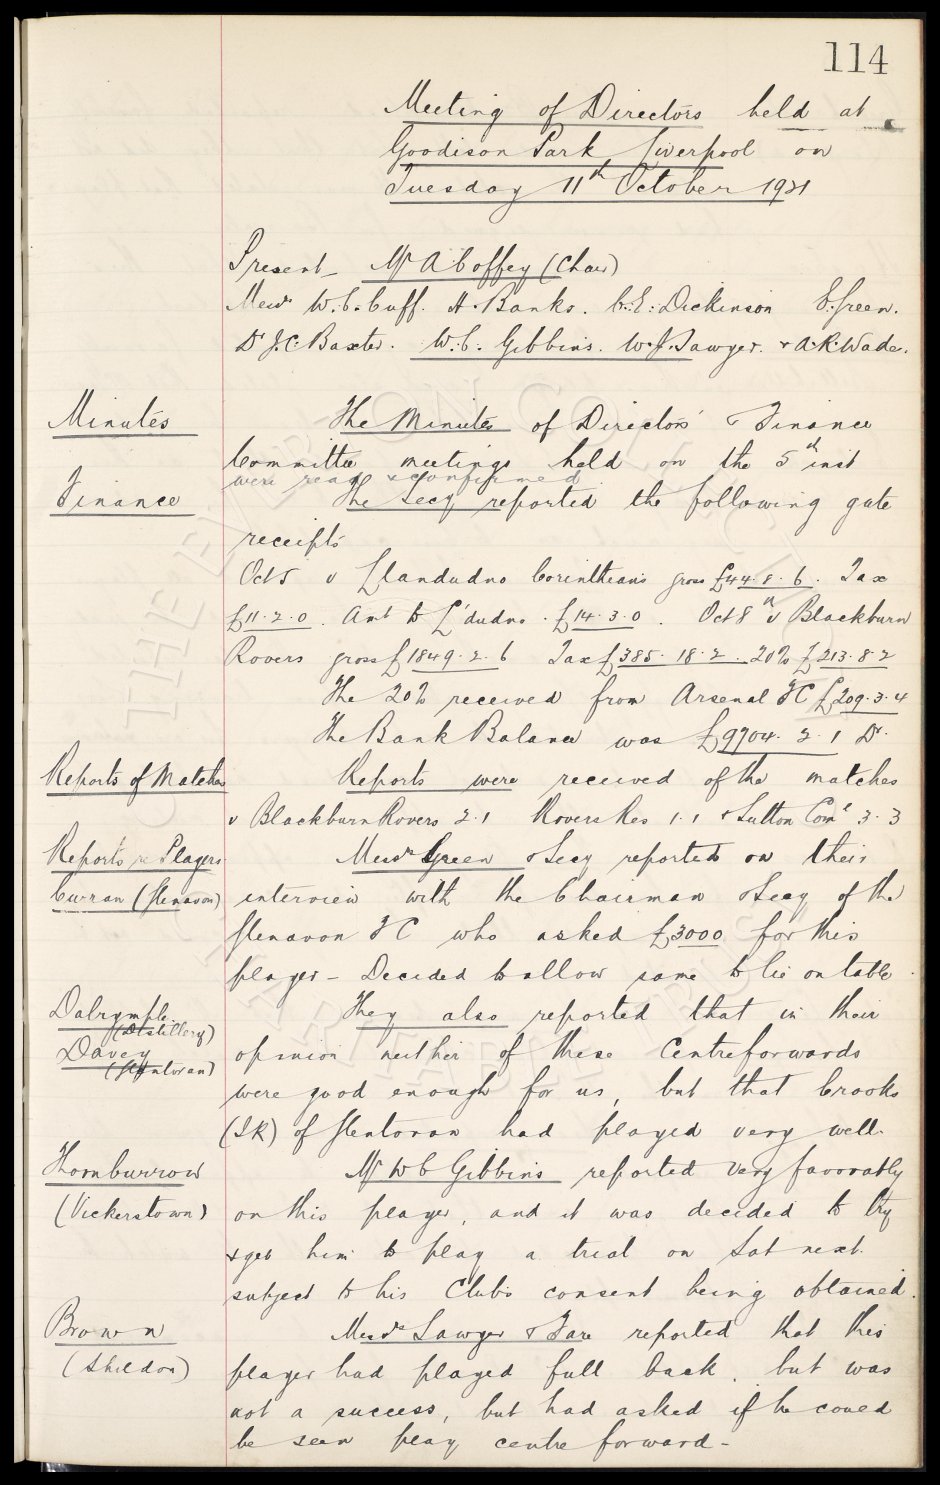 114
Meeting of Directors held at
Goodison Park Liverpool on
Tuesday 11th October 1921
Present - Mr A Coffey (Chair)
Messrs W.C. Cuff. H. Banks. C.E. Dickinson E. Green.
Dr J.C. Baxter. W.C. Gibbins. W.J. Sawyer. & A.R. Wade.
Minutes
The Minutes of Directors' & Finance
Committee meetings held on the 5th inst
were read & confirmed
Finance
The Secy reported the following gate
receipts
Oct 5 v Llandudno Corinthians gross £44.8.6. Tax
£11.2.0. Amt to L'dudno. £14.3.0. Oct 8th v Blackburn
Rovers gross £1849.2.6 Tax £385.18.2. 20% £213.8.2
The 20% received from Arsenal FC £209.3.4
The Bank Balance was £9704.2.1 Dr.
Reports of Matches
Reports were received of the matches
v Blackburn Rovers 2.1 Rovers Res 1.1 & Sutton Com' 3.3
Reports re Players
Messrs Green & Secy reported on their
Curran (Glenavon)
interview with the Chairman & Secy of the
Glenavon FC who asked £3000 for this
player - Decided to allow same to lie on table.
Dalrymple
(Distillery)
Davey
(Glentoran)
They also reported that in their
opinion neither of these Centreforwards
were good enough for us, but that Crooks
(IR) of Glentoran had played very well.
Thornburrow
(Vickerstown)
Mr W C Gibbins reported very favorably
on this player, and it was decided to try
& get him to play a trial on Sat next.
subject to his Clubs consent being obtained.
Brown
(Shildon)
Messrs Sawyer & Fare reported that this
player had played full back, but was
not a success, but had asked if he could
be seen play centre forward -